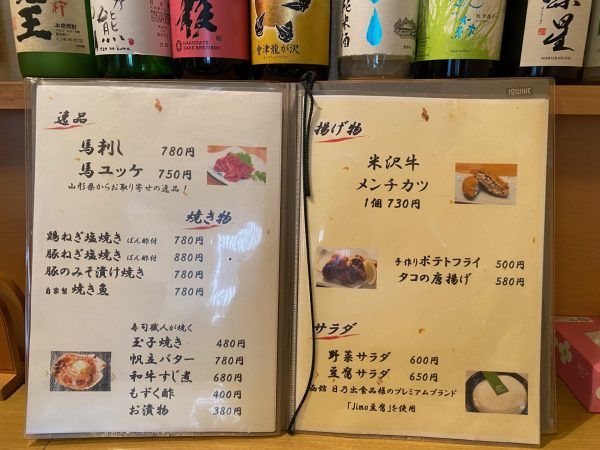 本格焼酎
王
熊
HAKODATE
SAKE BREWERY
會津龍が沢
純米酒
HAKURAKUSEI
SHIMBI
逸品
馬刺し 780円
馬ユッケ 750円
山形県からお取り寄せの逸品!
焼き物
鶏ねぎ塩焼き ぽん酢付 780円
豚ねぎ塩焼き ぽん酢付 880円
豚のみそ漬け焼き 780円
自家製 焼き魚 780円
寿司職人が焼く
玉子焼き 480円
帆立バター 780円
和牛すじ煮 680円
もずく酢 400円
お漬物 380円
揚げ物
米沢牛
メンチカツ
1個 730円
手作りポテトフライ 500円
タコの唐揚げ 580円
サラダ
野菜サラダ 600円
豆腐サラダ 650円
函館 日乃出食品様のプレミアムブランド
「Jimo豆腐」を使用